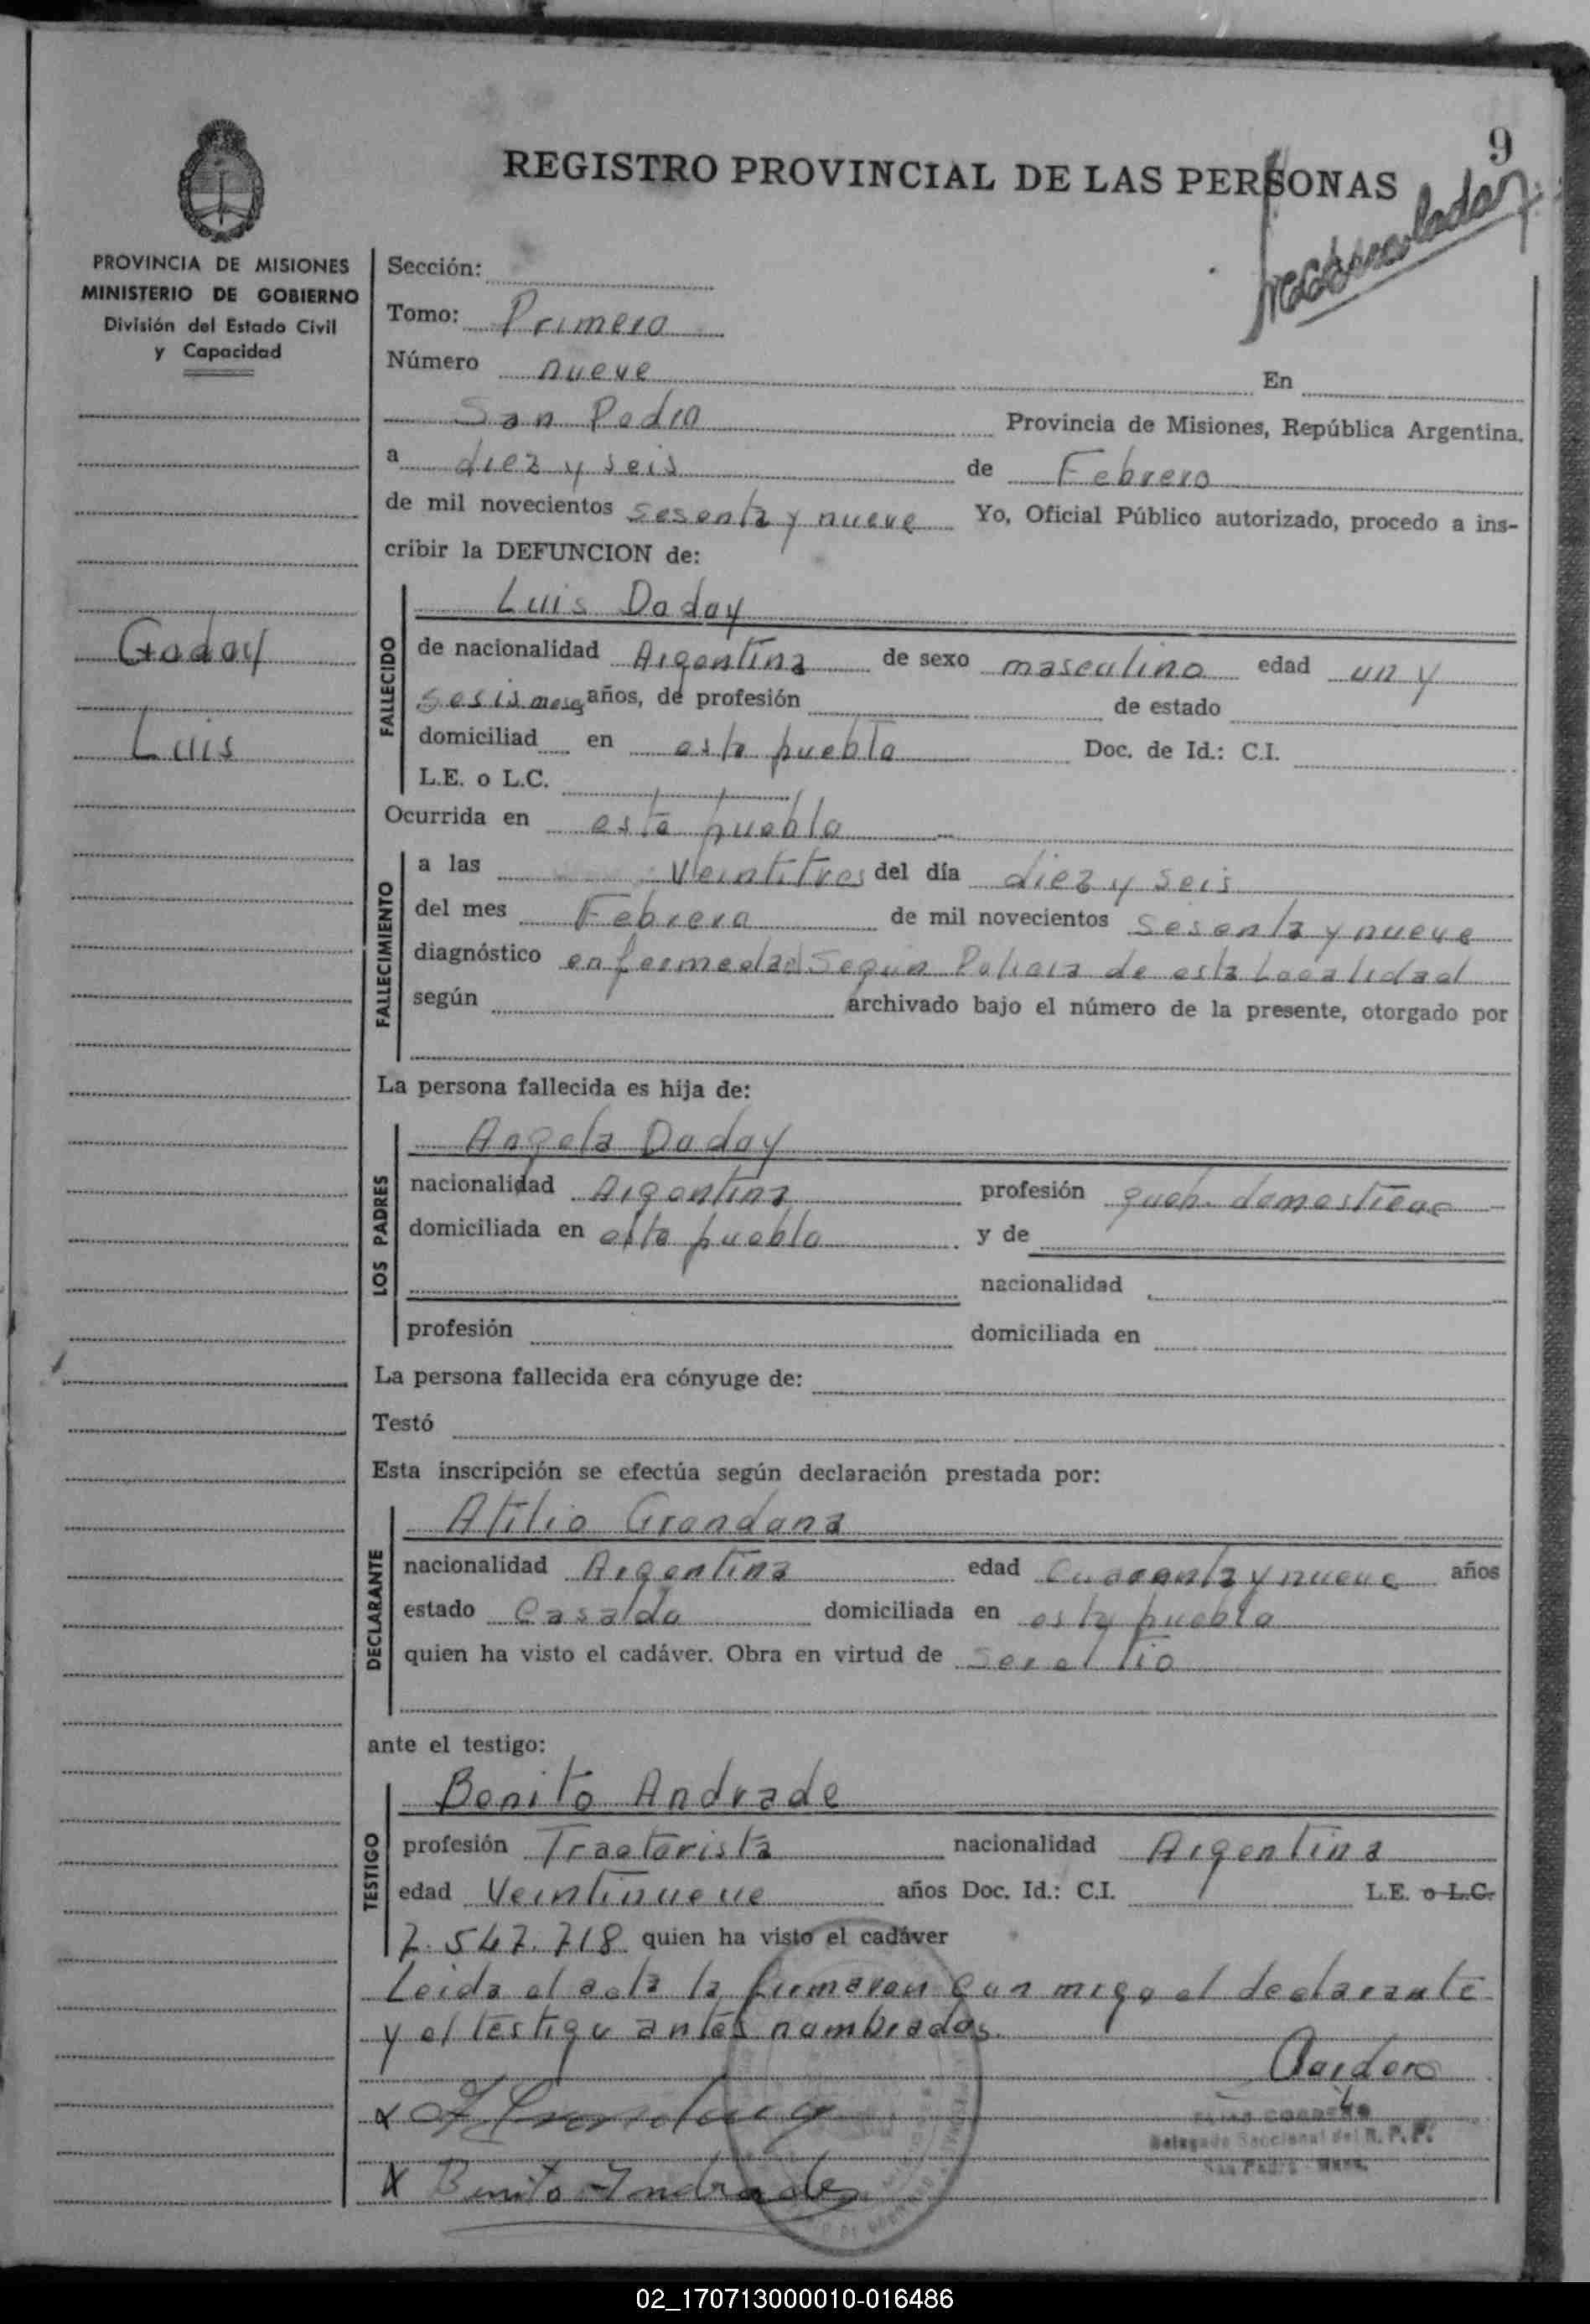 9
REGISTRO PROVINCIAL DE LAS PERSONAS
PROVINCIA DE MISIONES
MINISTERIO DE GOBIERNO
División del Estado Civil
y Capacidad
Goday
Luis
Sección:
Tomo: Primero
Número nueve En
San Pedro Provincia de Misiones, República Argentina.
a diez y seis de Febrero
de mil novecientos sesenta y nueve Yo, Oficial Público autorizado, procedo a ins-
cribir la DEFUNCION de:
FALLECIDO
Luis Doday
de nacionalidad Argentina de sexo masculino edad un y
sesis meses años, de profesión de estado
domiciliad en este pueblo Doc. de Id.: C.I.
L.E. o L.C.
Ocurrida en este pueblo
FALLECIMIENTO
a las Veintitres del día diez y seis
del mes Febrero de mil novecientos sesenta y nueve
diagnóstico enfermedad Segun Policia de esta Localidad
según archivado bajo el número de la presente, otorgado por
La persona fallecida es hija de:
LOS PADRES
Angela Doday
nacionalidad Argentina profesión queh. domesticos
domiciliada en este pueblo y de
nacionalidad
profesión domiciliada en
La persona fallecida era cónyuge de:
Testó
Esta inscripción se efectúa según declaración prestada por:
DECLARANTE
Atilio Grondona
nacionalidad Argentina edad Cuarenta y nueve años
estado Casado domiciliada en este pueblo
quien ha visto el cadáver. Obra en virtud de ser el tio
ante el testigo:
TESTIGO
Benito Andrade
profesión Tractorista nacionalidad Argentina
edad Veintinueve años Doc. Id.: C.I. L.E. o L.C.
7.547.718 quien ha visto el cadáver
Leida el acta la firmaron con migo el declarante
y el testigo antes nombrados.
Delegado Seccional del R. P. P.
San Pedro - Mnes.
x
x Benito Andrade
02_170713000010-016486